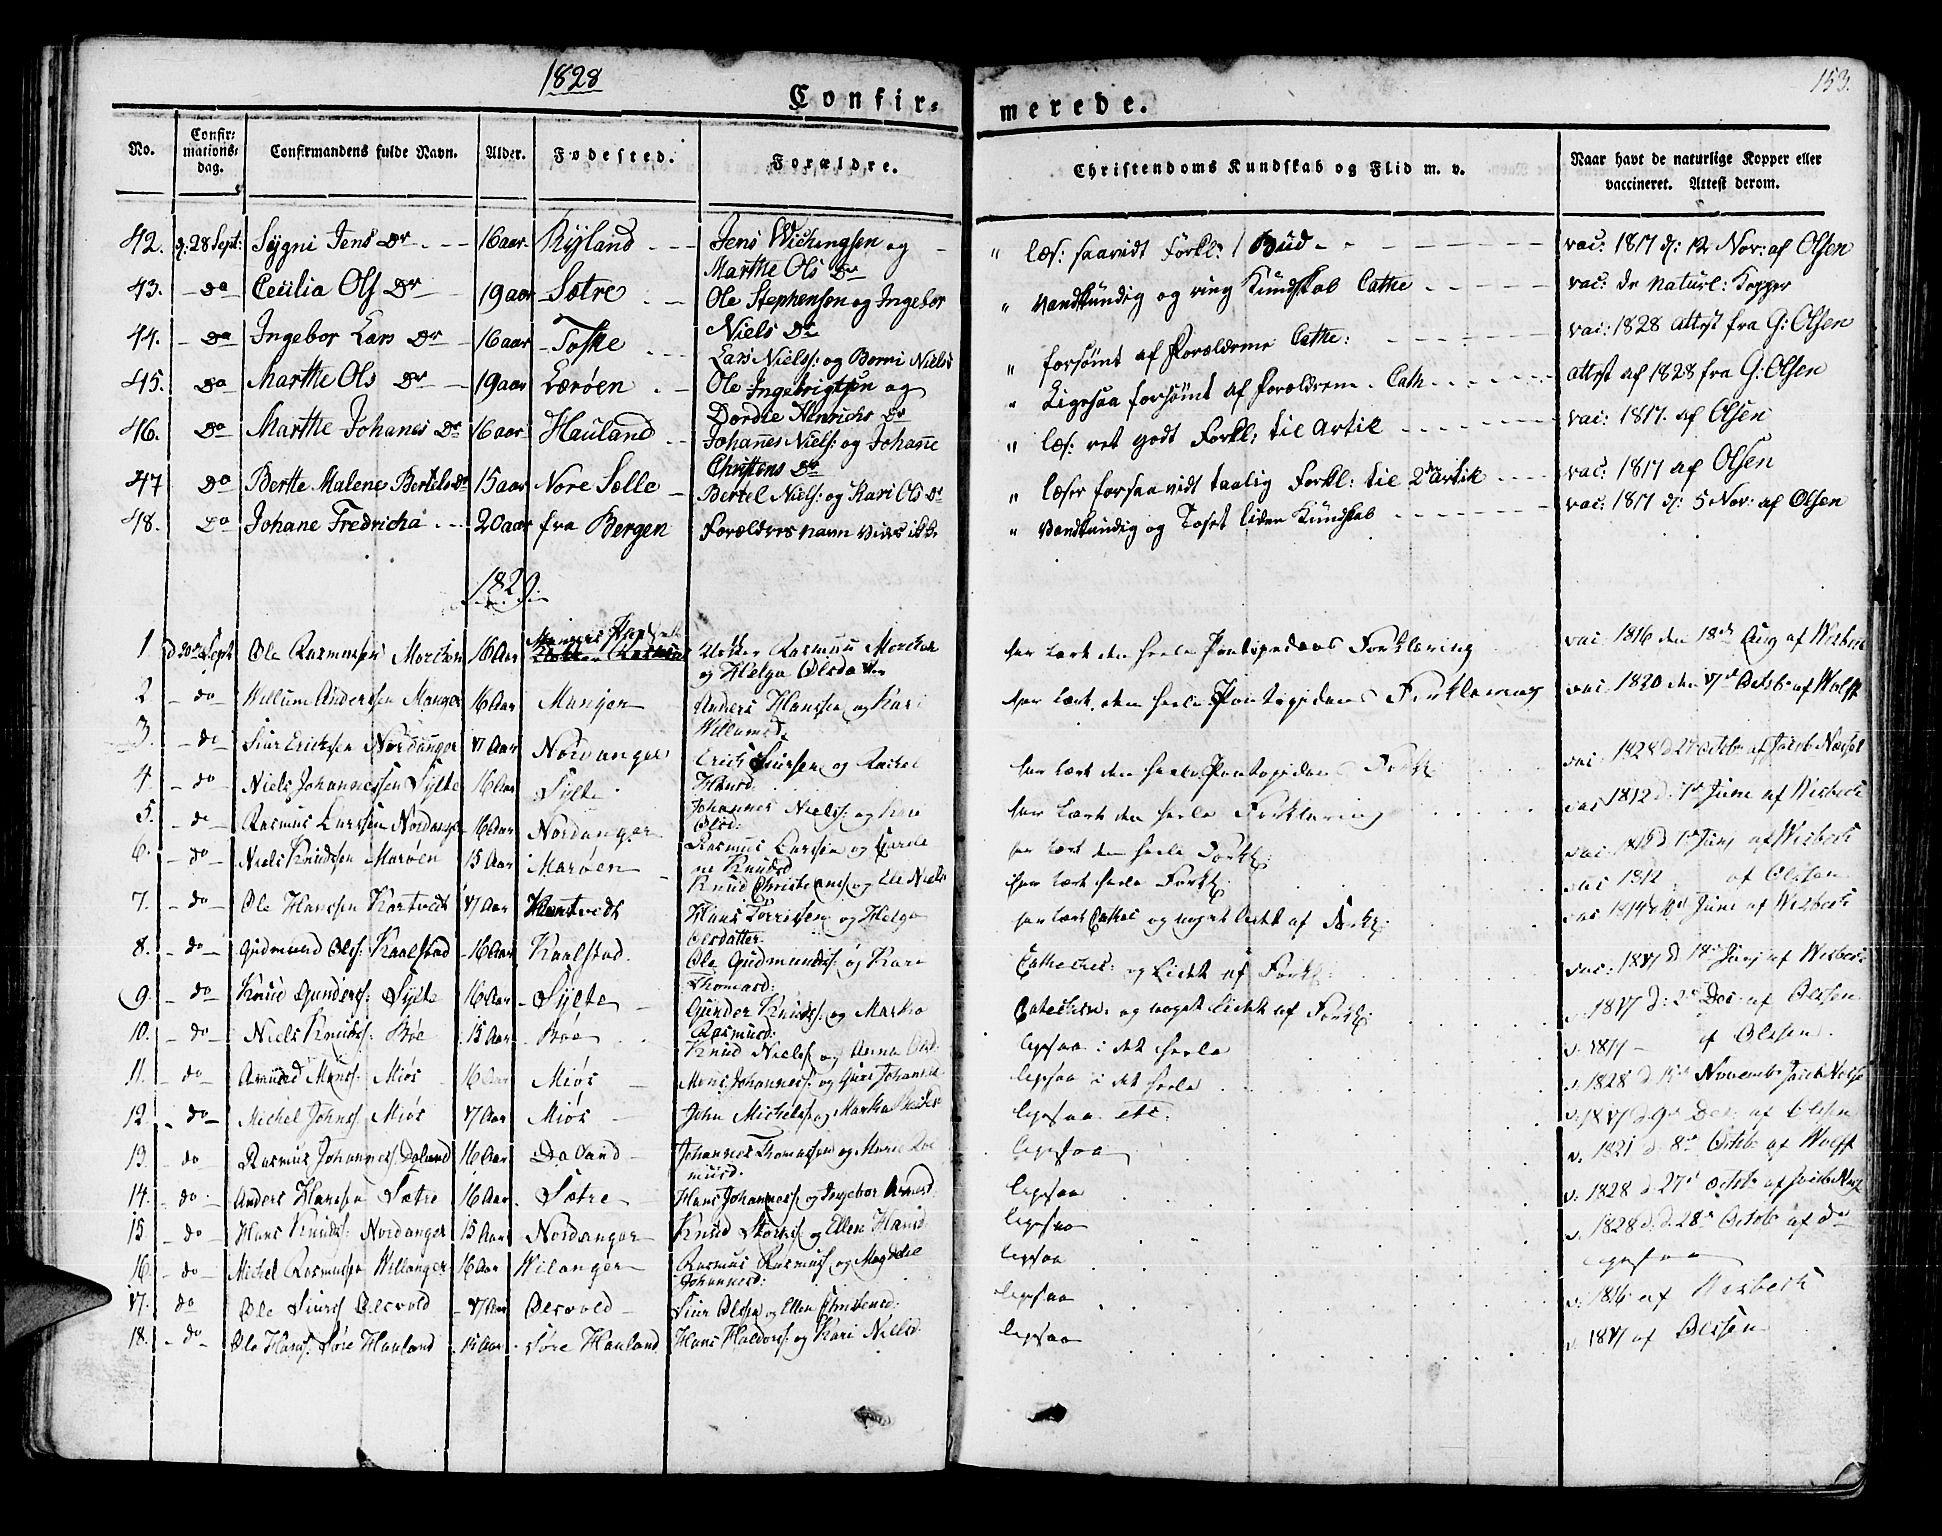 1828
153.
Confir=
merede.
No.
Confir=
mations=
dag.
Confirmandens fulde Navn.
Alder.
Fødested.
Forældre.
Christendoms Kundskab og Flid m. v.
Naar havt de naturlige Kopper eller
vaccineret. Attest derom.
42. 28 Sept: Sygni Jens Dr 16 aar Ryland Jens Wichingsen og
Marthe Ols Dr
" læs: saavidt Forkl: Bud vac: 1817 d: 12 Nov: af Olsen
43. Do Cecilia Ols Dr 19 aar Sætre Ole Stephensen og Ingebor
Niels Dr
" vandkundig og ring Kundskab Cathe vac: de naturl: Kopper
44. Do Ingebor Lars Dr 16 aar Toske
Lars Niels: og Niels
" forsømt af Forældrene Cathe: vac: 1828 attest fra G: Olsen
45. Do Marthe Ols Dr 19 aar Lærøen Ole Ingebrigtsen og
Dordie Henrichs Dr
" Ligesaa forsømt af Forældrene Cath attest af 1828 fra G: Olsen
46. Do Marthe Johanes Dr 16 aar Hauland Johanes Niels: og Johane
Christens Dr
" læs: ret godt Forkl: til Artik vac: 1817. af Olsen
47 Do Berthe Malene Bertels Dr 15 aar Nore Sælle Bertel Niels: og Kari Ols Dr
" læser forsaavidt taalig Forkl: til 2den artik vac: 1817 af Olsen
48. Do Johane Fredricha 20 aar fra Bergen Forældres navn vides ikke
" Vandkundig og liden Kundskab vac: 1817 d: 5 Nov: af Olsen
1829
1 d 20 Sept Ole Rasmussen 16 Aar Mangers Klokker Rasmus
og Helga Olsdatter
har lært den heele Pontopidans Forklaring vac 1816 den 18de Aug af Wisbech
2 do Willum Anderssen Manger 16 Aar Manger Anders Hanssen og Kari
Willumsd.
har lært den heele Pontopidans Forklaring vac 1820 den 17de Octob af Wolff
3. do Siur Erichsen Nordanger 17 Aar Nordanger Erich Siursen og Rachel
Hansd:
har lært den heele Pontopidans Forkl vac. 1828 d 27 Octob af Jacob
4. do Niels Johannessen Sylte 16 Aar Sylte Johannes Niels: og Kari
Olsd:
har lært den heele Forklaring vac 1812 d. 1ste Juni af Wisbech
5. do Rasmus Larssen Nordanger 16 Aar Nordanger Rasmus Larssen og
Knudsd
har lært den heele Forkl: vac: d 1ste Juni af Wisbech
6. do Niels Knudssen Marøen 15 Aar Marøen Knud Christians: og Eli Niels
har lært heele Forkl: vac 1812 af Olssen
7. do Ole Hanssen Kartvedt 17 Aar Kartvedt Hans Torrissen og Helga
Olsdatter
har lært Cathec og noget lidet af Forkl: vac Juni af Wisbech
8. do Gudmund Olss: Kaalstad 16 Aar Kaalstad. Ole Gudmunds: og Kari
Thomasd:
Catheches: og lidet af Forkl: vac: 1817 d 18de Juni af Wisbech
9. do Knud Gunders: Sylte 16 Aar Sylte Gunder Knuds: og Martha
Rasmusd:
Catechism: og noget lidet af Forkl: v. 1817 d: 2de Dec. af Olssen
10. do Niels Knuds: Bøe 15 Aar Bøe Knud Niels: og Anna Olsd:
ligesaa i det heele v. 1817 af Olssen
11. do Amund Mons: Miøs 16 Aar Miøs Mons Johannes: og Guri Johannes
ligesaa i det heele v. 1828 d 15de Novemb Jacob
12. do Michel Johns: Miøs 17 Aar Miøs John Michels: og Martha
ligesaa etc. v. 1817 d 9de Dec: af Olssen
13. do Rasmus Johannes: Daland 16 Aar Daland Johannes Thomassen og Marie Ras
musd.
ligesaa v. 1821 d. 8de Octob af Wolff
14. do Anders Hanssen Sætre 16 Aar Sætre Hans Johannes: og Ingebor
ligesaa v. 1828 d. 27de Octob af Jacob
15 do Hans Knuds: Nordanger 15 Aar Nordanger Knud og Ellen Hansd
ligesaa v. 1828 d. 28de Octob af do
16. do Michel Rasmussen Willanger 16 Aar Wilanger Rasmus Rasmus: og Magdele
Johannesd:
ligesaa ligesaa
17. do Ole Siurs: Olsvold 17 Aar Olsvold Siur Olsen og Ellen Christensd:
ligesaa v: 1816 af Wisbech
18. do Ole Hans: Søre Hauland 15 Aar Søre Hauland Hans Haldors: og Kari Nielsd
ligesaa v. 1817 af Olssen